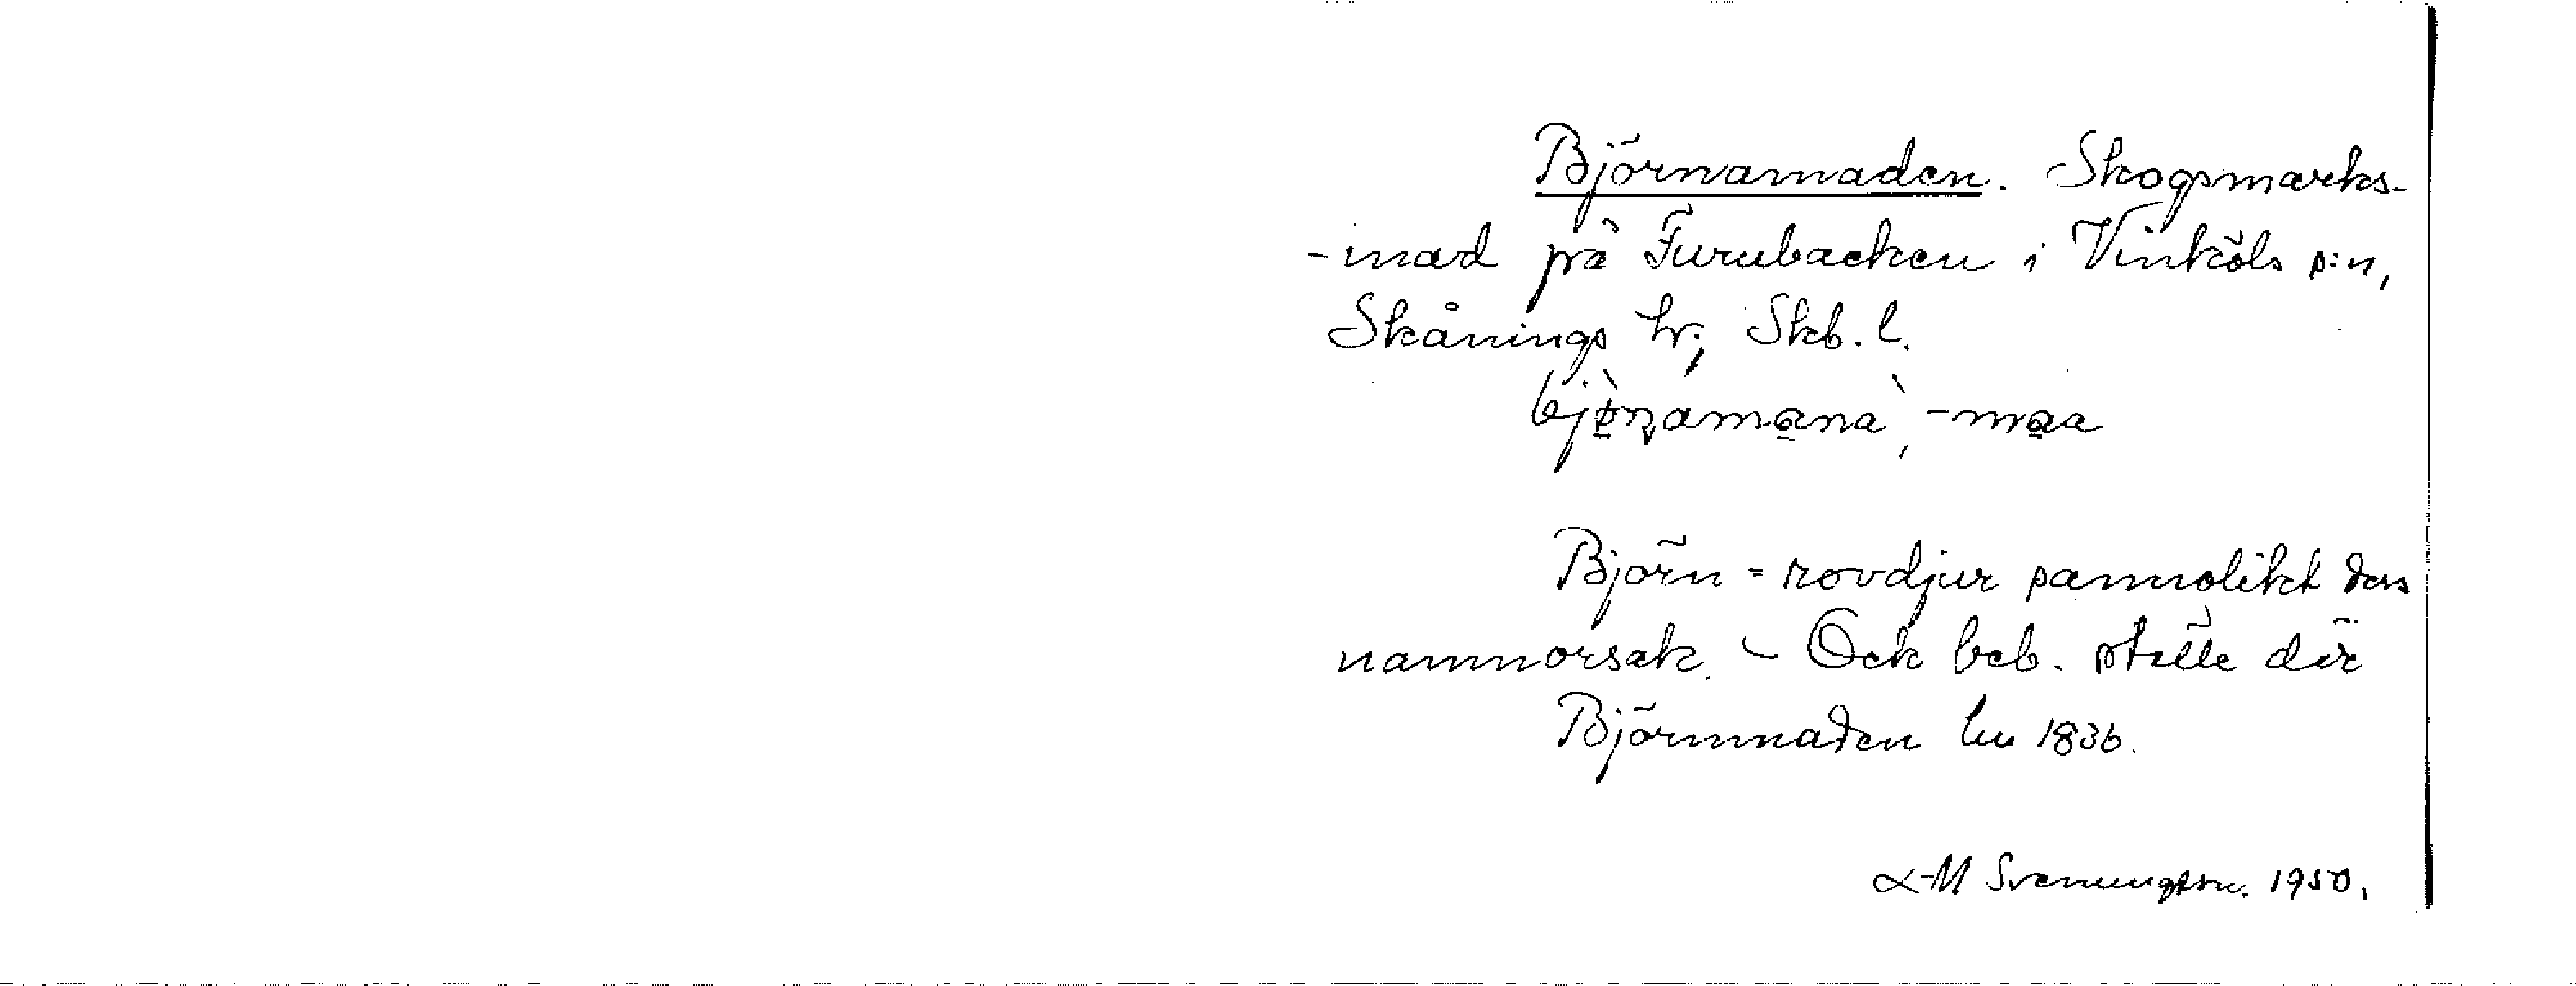 Björnamaden. Skogsmarks-
-mad på Furubacken i Vinköls s:n,
Skånings hr; Skb. l.
bjø̀ṇamana, -maa
Björn = rovdjur sannolikt dess
namnorsak. - Ock beb. ställe där
Björnmaden lm 1836.
A-M Svenungson. 1950.